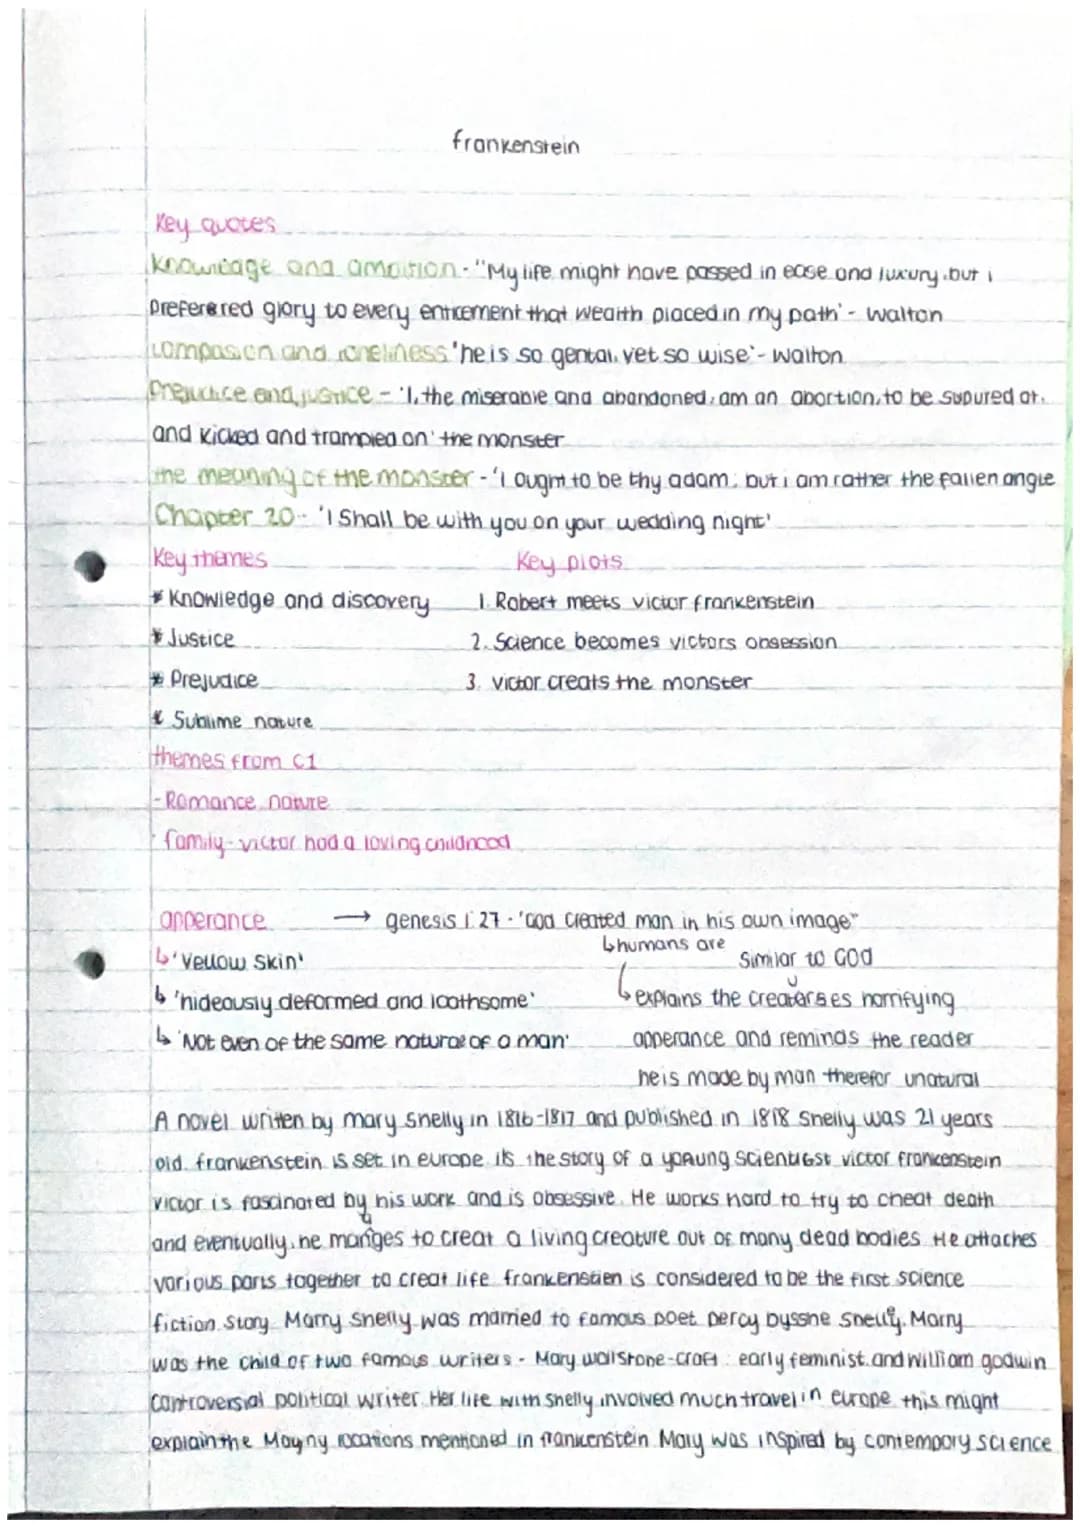 frankenstein
Key quotes
Knowledge and ambition - "My life might have passed in ease and luxury. but i
preferered glory to every enticement that wealth placed in my path' - Walton
compasion and loneliness 'he is so gental, yet so wise' - Walton
Prejudice and justice - 'I, the miserable and abandoned, am an abortion, to be spurned at.
and kicked and trampled on' the monster
the meaning of the monster - 'I ought to be thy adam; but i am rather the fallen angle
Chapter 20 - 'I shall be with you on your wedding night'
Key themes Key plots
* Knowledge and discovery 1. Robert meets victor frankenstein
* Justice 2. Science becomes victors obsession
* Prejudice 3. victor creats the monster
* Sublime nature
themes from C1
- Romance nature
· family - victor had a loving childhood
apperance → genesis 1:27 - 'God created man in his own image"
↳ 'Yellow skin' ↳ humans are similar to GOD
↳ 'hideously deformed and loathsome' ↳ explains the createrses horrifying
↳ 'Not even of the same nature of a man' apperance and reminds the reader
he is made by man therefor unatural
A novel written by mary Shelly in 1816-1817 and published in 1818 Shelly was 21 years
old. frankenstein is set in europe its the story of a young scientist victor frankenstein
victor is fascinated by his work and is obsessive. He works hard to try to cheat death
and eventually, he manges to creat a living creature out of many dead bodies He attaches
various parts together to creat life frankenstien is considered to be the first science
fiction story Marry Shelly was married to famous poet percy bysshe shelly. Marry
was the child of two famous writers - Mary wollstone-craft: early feminist and william godwin
controversial political writer. Her life with shelly involved much travel in europe this might
explain the many locations mentioned in frankenstein Mary was inspired by contempory science